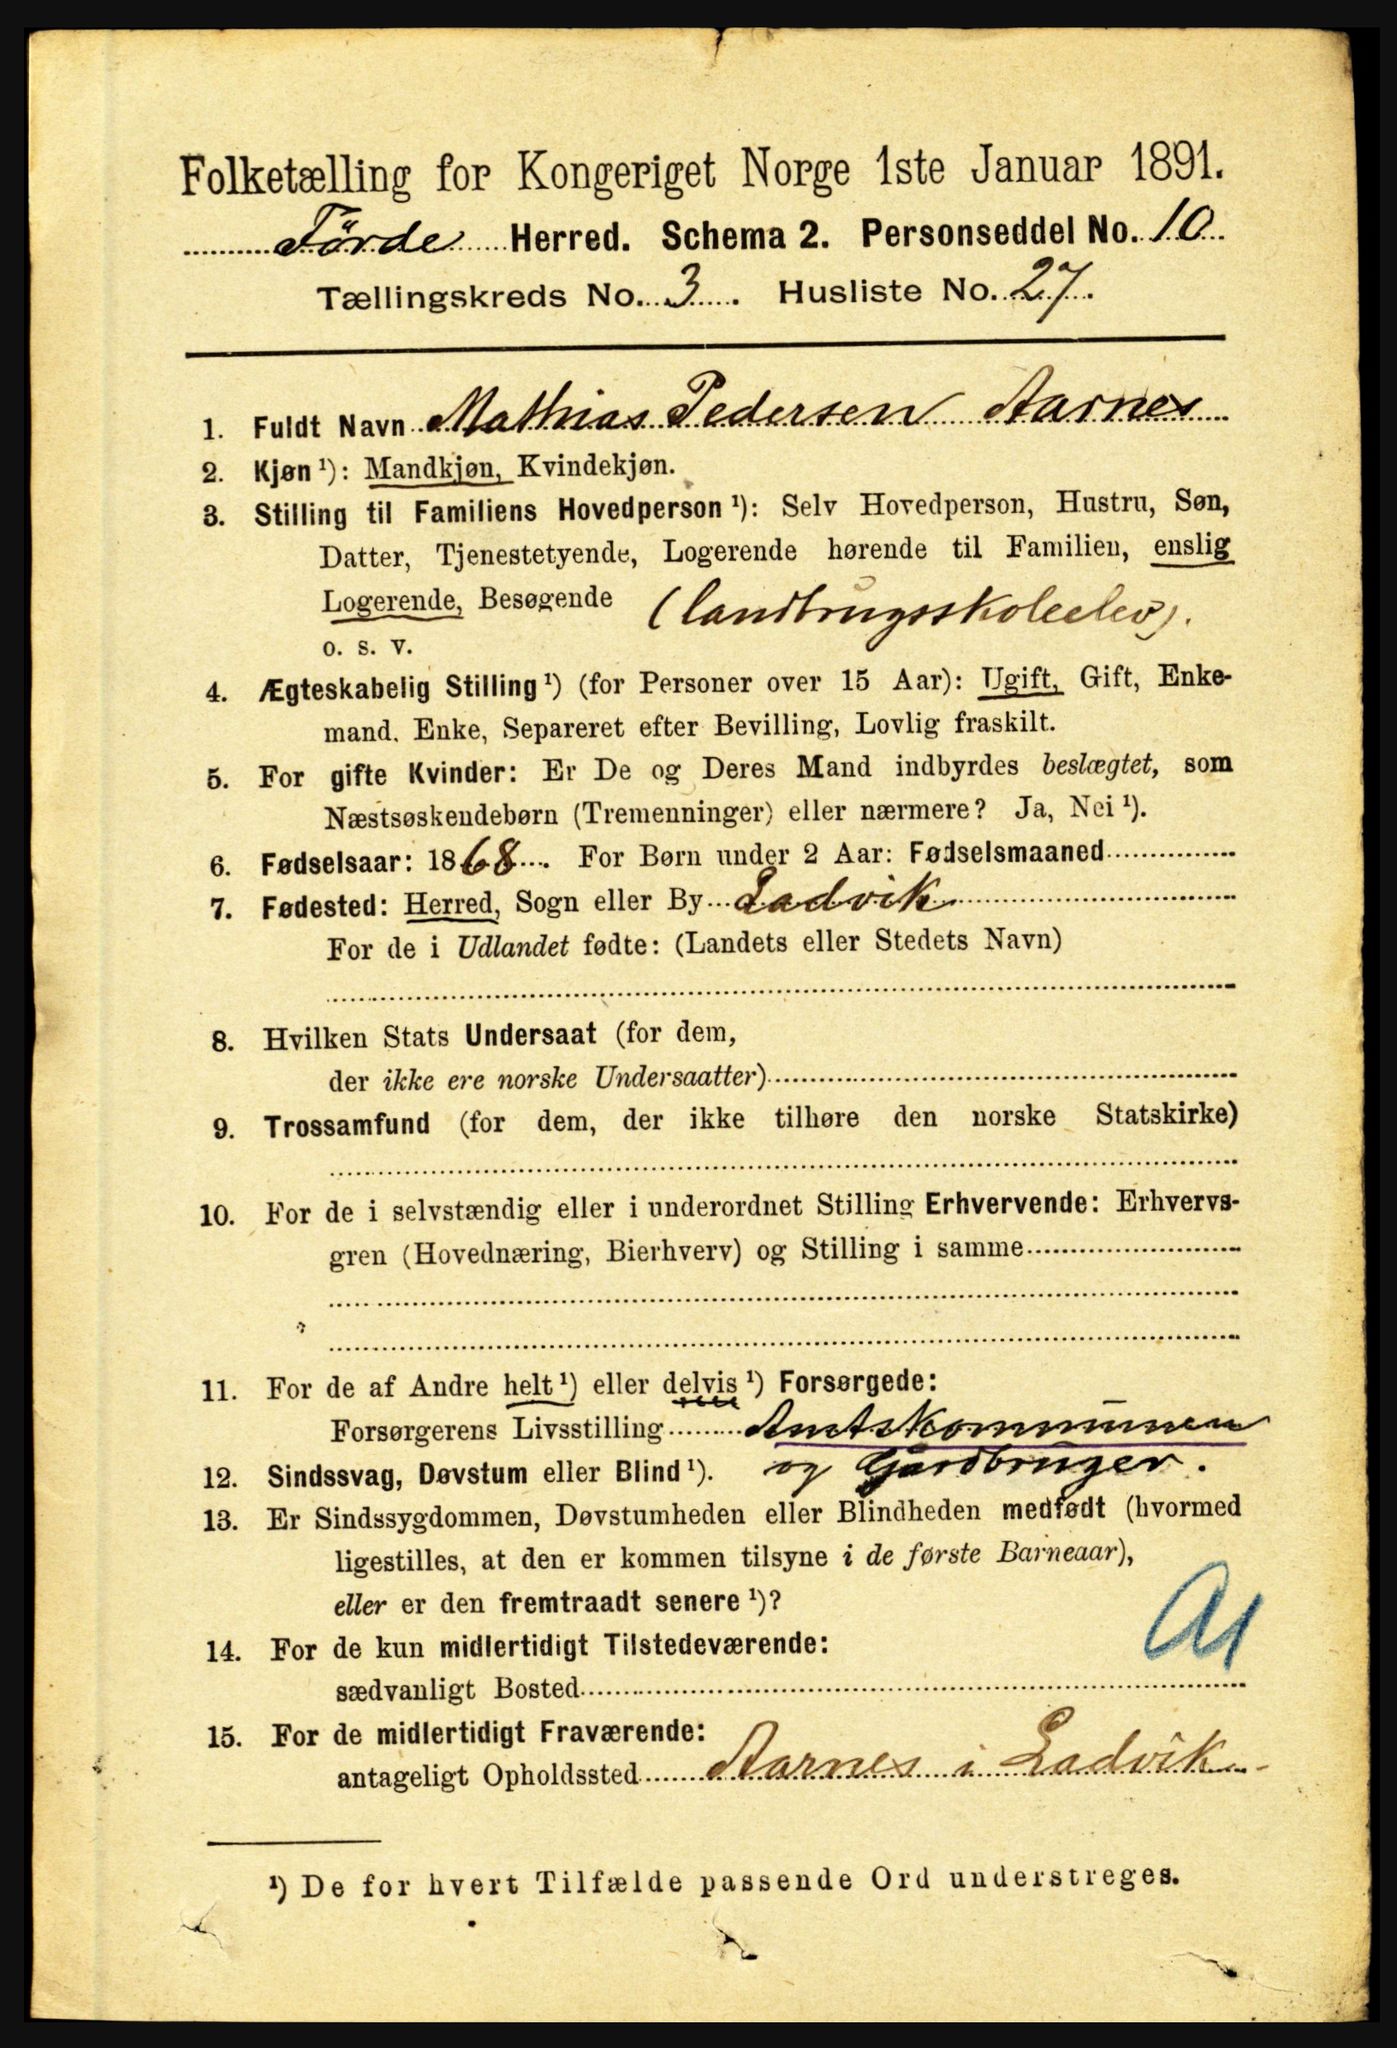 Folketælling for Kongeriget Norge 1ste Januar 1891.
Förde Herred. Schema 2. Personseddel No. 10
Tællingskreds No. 3. Husliste No. 27.
1. Fuldt Navn Mathias Pedersen Aarnes
2. Kjøn ¹): Mandkjøn, Kvindekjøn.
3. Stilling til Familiens Hovedperson ¹): Selv Hovedperson, Hustru, Søn,
Datter, Tjenestetyende, Logerende hørende til Familien, enslig
Logerende, Besøgende (landbrugsskoleelev).
o. s. v.
4. Ægteskabelig Stilling ¹) (for Personer over 15 Aar): Ugift, Gift, Enke-
mand. Enke, Separeret efter Bevilling, Lovlig fraskilt.
5. For gifte Kvinder: Er De og Deres Mand indbyrdes beslægtet, som
Næstsøskendebørn (Tremenninger) eller nærmere? Ja, Nei ¹).
6. Fødselsaar: 1868. For Børn under 2 Aar: Fødselsmaaned
7. Fødested: Herred, Sogn eller By Ladvik
For de i Udlandet fødte: (Landets eller Stedets Navn)
8. Hvilken Stats Undersaat (for dem,
der ikke ere norske Undersaatter)
9. Trossamfund (for dem, der ikke tilhøre den norske Statskirke)
10. For de i selvstændig eller i underordnet Stilling Erhvervende: Erhvervs-
gren (Hovednæring, Bierhverv) og Stilling i samme
11. For de af Andre helt ¹) eller delvis ¹) Forsørgede:
Forsørgerens Livsstilling Amtskommunen
12. Sindssvag, Døvstum eller Blind ¹). og Gårdbruger.
13. Er Sindssygdommen, Døvstumheden eller Blindheden medfødt (hvormed
ligestilles, at den er kommen tilsyne i de første Barneaar),
eller er den fremtraadt senere ¹)?
A1
14. For de kun midlertidigt Tilstedeværende:
sædvanligt Bosted
15. For de midlertidigt Fraværende:
antageligt Opholdssted Aarnes i Ladvik
¹) De for hvert Tilfælde passende Ord understreges.